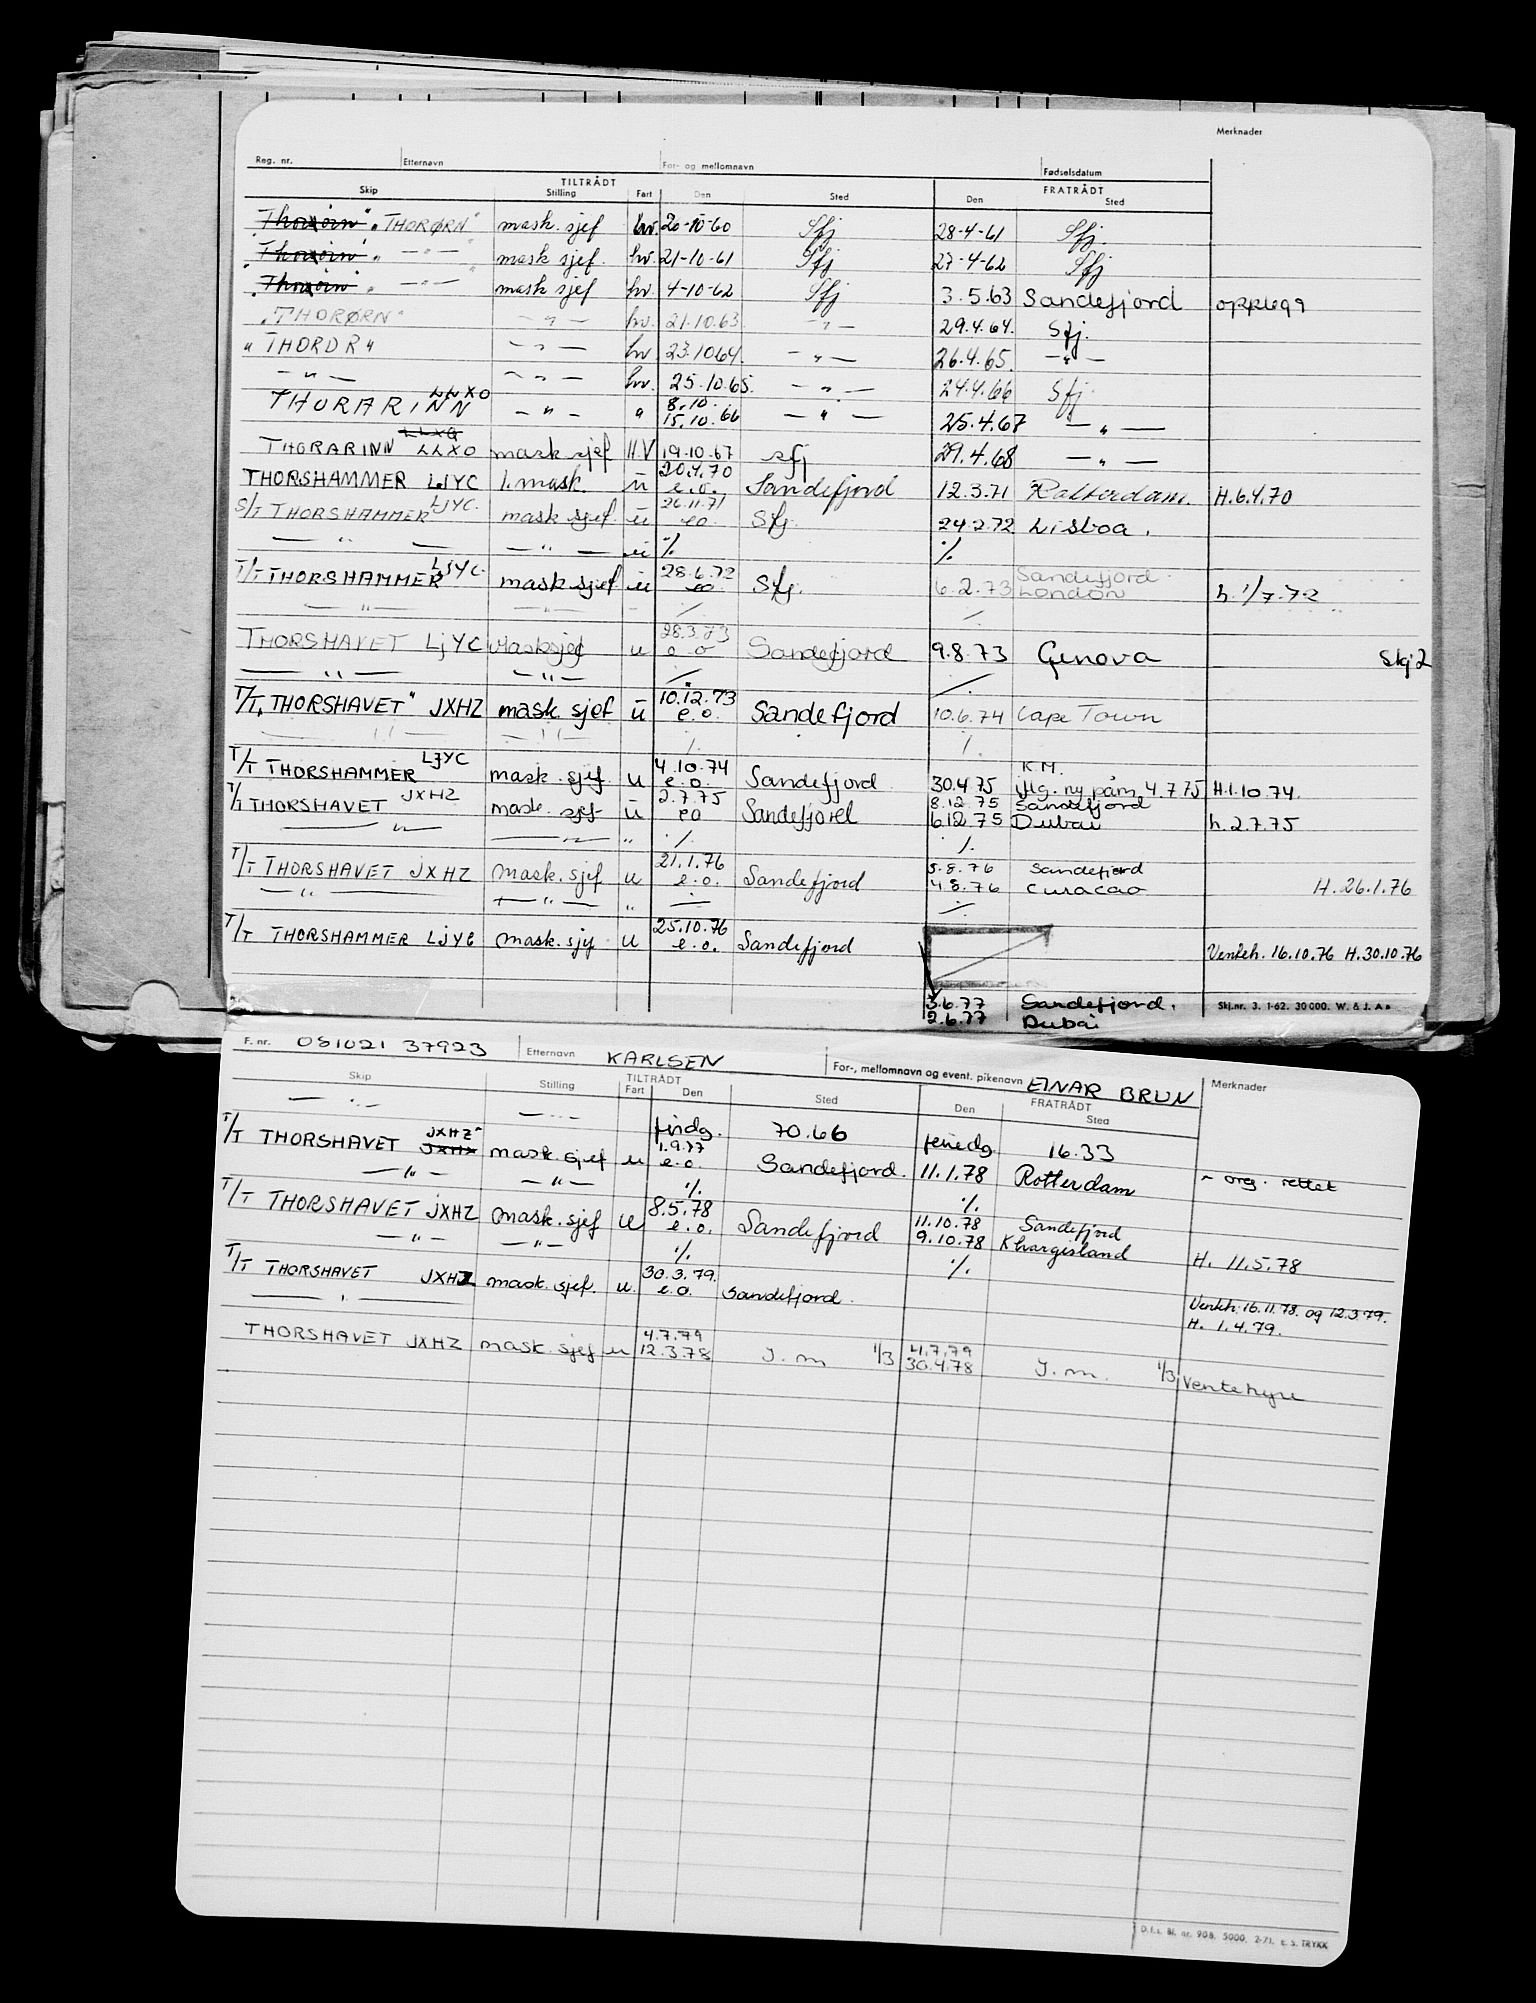 Merknader
Reg. nr. Etternavn For- og mellomnavn Fødselsdatum
TILTRÅDT FRATRÅDT
Skip Stilling Fart Den Sted Den Sted
Thorörn "THORØRN" mask. sjef hv. 20-10-60 Sfj 28-4-61 Sfj.
Thorörn " — " — mask sjef. hv. 21-10-61 Sfj 27-4-62 Sfj
Thorörn " — " — mask sjef hv. 4-10-62 Sfj 3.5.63 Sandefjord opplegg
"THORØRN" — " — hv. 21.10.63 — " — 29.4.64. Sfj.
"THORDR" — " — hv 23.10.64. — " — 26.4.65. — " —
— " — — " — hv. 25.10.65. — " — 24.4.66 Sfj
LLXO 8.10.
THORARINN — " — " 15.10.66 — " — 25.4.67 — " —
LLXO
THORARINN LLXO mask sjef H.V 19.10.67 sfj 29.4.68 — " —
20.4.70
THORSHAMMER LJYC 1. mask. u e.o. Sandefjord 12.3.71 Rotterdam. H.6.4.70
26.11.71
S/T THORSHAMMER LJYC. mask sjef. u eo. Sfj. 24.2.72 Lisboa.
— " — — " — u % %
28.6.72 Sandefjord.
T/T THORSHAMMER LJYC. mask sjef u eo. Sfj. 6.2.73 London h. 1/7.72
— " — — " — % %
28.3.73
THORSHAVET LjYC Masksjef u e o Sandefjord 9.8.73 Genova Skj 2
— " — — " — % %
10.12.73
T/T "THORSHAVET" JXHZ mask. sjef u e.o. Sandefjord 10.6.74 Cape Town
— " — — " — % %
4.10.74 K.M.
T/T THORSHAMMER LJYC mask. sjef. u e.o. Sandefjord 30.4.75 iflg. ny påm. 4.7.75 H.1.10.74.
2.7.75 8.12.75 Sandefjord
T/T THORSHAVET JXHZ mask. sjef u eo Sandefjord 6.12.75 Dubai h. 2.7.75
— " — — " — " % %
21.1.76 5.8.76 Sandefjord
T/T THORSHAVET JXHZ mask. sjef u e.o. Sandefjord 4.8.76 Curacao H. 26.1.76
— " — — " — " % %
25.10.76
T/T THORSHAMMER LJYC mask. sjef u e.o. Sandefjord Venteh. 16.10.76 H. 30.10.76
3.6.77 Sandefjord. Skj.nr. 3. 1-62. 30 000. W. & J. A s
2.6.77 Dubai
F. nr. 081021 37923 Etternavn KARLSEN For-, mellomnavn og event. pikenavn EINAR BRUN Merknader
TILTRÅDT FRATRÅDT
Skip Stilling Fart Den Sted Den Sted
— " — — " — 70.66 16.33
1.9.77
T/T THORSHAVET JXHZ JXHX mask. sjef u e.o. Sandefjord. 11.1.78 Rotterdam ~ org. rettet
— " — — " — % %
8.5.78 11.10.78 Sandefjord
T/T THORSHAVET JXHZ mask. sjef u e.o. Sandefjord 9.10.78 Khargisland H. 11.5.78
— " — — " — % %
30.3.79. Ventch. 16.11.78. og 12.3.79.
T/T THORSHAVET JXHZ mask. sjef. u. e.o. Sandefjord. H. 1.4.79.
— " —
4.7.79 4.7.79
THORSHAVET JXHZ mask. sjef u 12.3.78 J. m 1/3 30.4.78 J. m. 1/3 Ventehyre
D.f.s. Bl. nr. 908. 5000. 2-71. E. S. TRYKK